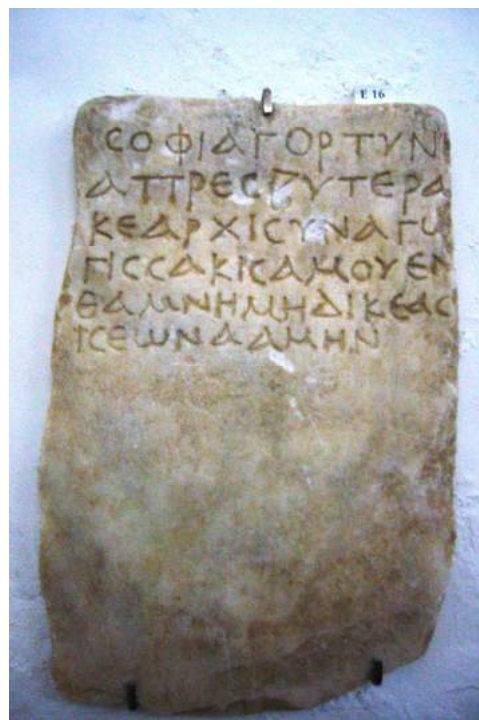 E 16
ϹΟΦΙΑΓΟΡΤΥΝΙ
ΑΠΡΕϹΒΥΤΕΡΑ
ΚΕΑΡΧΙϹΥΝΑΓΩ
ΓΙϹϹΑΚΙϹΑΜΟΥΕΝ
ΘΑΜΝΗΜΗΔΙΚΕΑϹ
ΙϹΕΩΝΑΑΜΗΝ